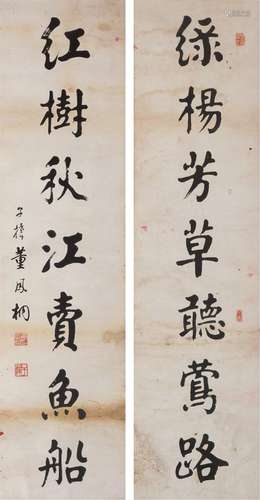 綠楊芳草聽鶯路
紅樹秋江賣魚船
董風桐